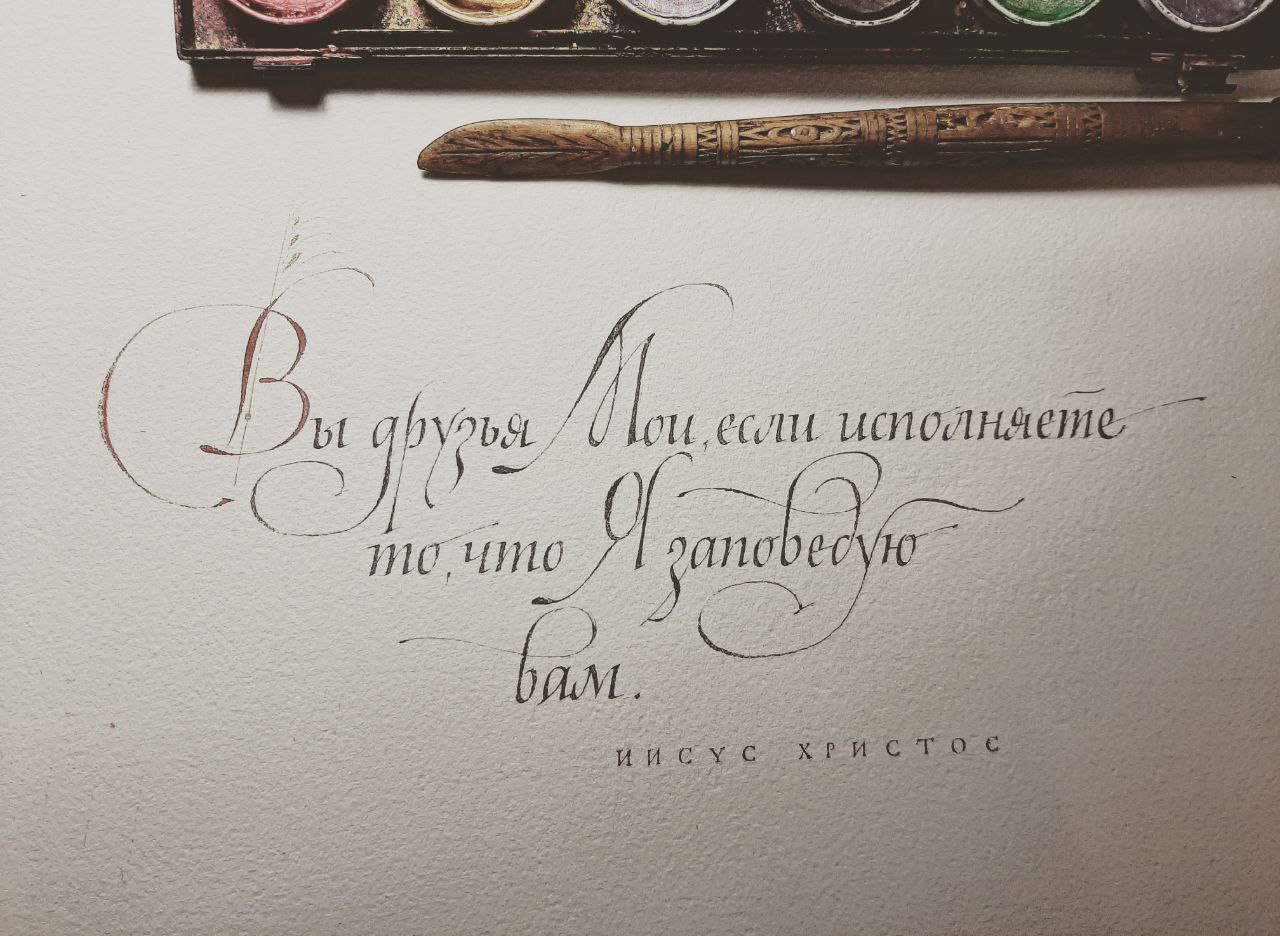 Вы друзья Мои, если исполняете
то, что Я заповедую
вам.
ИИСУС ХРИСТОС